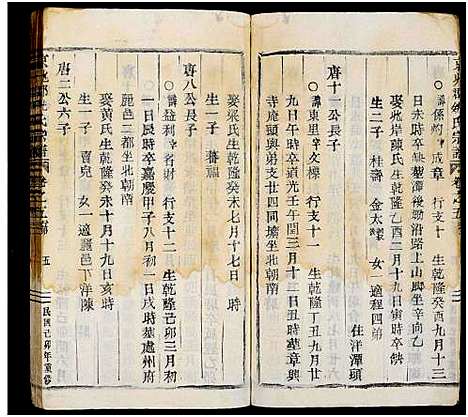 壽係 成章 行支十 生乾隆癸酉九月十三
日未時卒缺墓潭後塝沿路上山脚坐辛向乙
娶龙岸陳氏生乾隆乙酉二月十九日寅時卒缺
生二子 桂壽 金太 女一適程四弟
唐十一公長子
壽東里 文標 行支十一 生乾隆丁丑九月廿
九日午時卒道光壬午閏三月十三日丑時墓章
寺庵頭與弟支廿三支廿五同穴坐北朝南
住洋潭頭
娶張氏生乾隆癸未七月十七日時
生一子 蕃福
唐八公長子
壽益利 省財 行支十二 生乾隆己卯三月初
一日辰時卒嘉慶甲子八月初一日戌時墓處州府
麗邑二都坐北朝南
娶黃氏生乾隆癸未十月十九日亥時
生一子 賣兒 女一適麗邑下洋陳
唐二公六子
五
民國己卯年重修